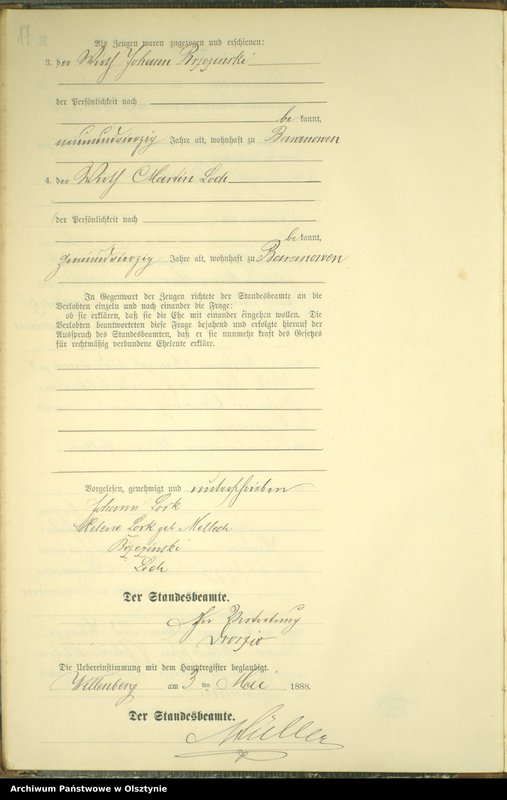 17
Als Zeugen waren zugezogen und erschienen:
3. der Wirth Johann Brzezinski
der Persönlichkeit nach
be kannt,
neunundvierzig Jahre alt, wohnhaft zu Baranowen
4. der Wirth Martin Loch
der Persönlichkeit nach
be kannt,
zweiundvierzig Jahre alt, wohnhaft zu Baranowen
In Gegenwart der Zeugen richtete der Standesbeamte an die
Verlobten einzeln und nach einander die Frage:
ob sie erklären, daß sie die Ehe mit einander eingehen wollen. Die
Verlobten beantworteten diese Frage bejahend und erfolgte hierauf der
Ausspruch des Standesbeamten, daß er sie nunmehr kraft des Gesetzes
für rechtmäßig verbundene Eheleute erkläre.
Vorgelesen, genehmigt und unterschrieben
Johann Lork
Helene Lork geb Mellech
Brzezinski
Loch
Der Standesbeamte.
In Vertretung
Die Uebereinstimmung mit dem Hauptregister beglaubigt.
Willenberg am 3 ten Mai 1888.
Der Standesbeamte.
Müller
Archiwum Państwowe w Olsztynie